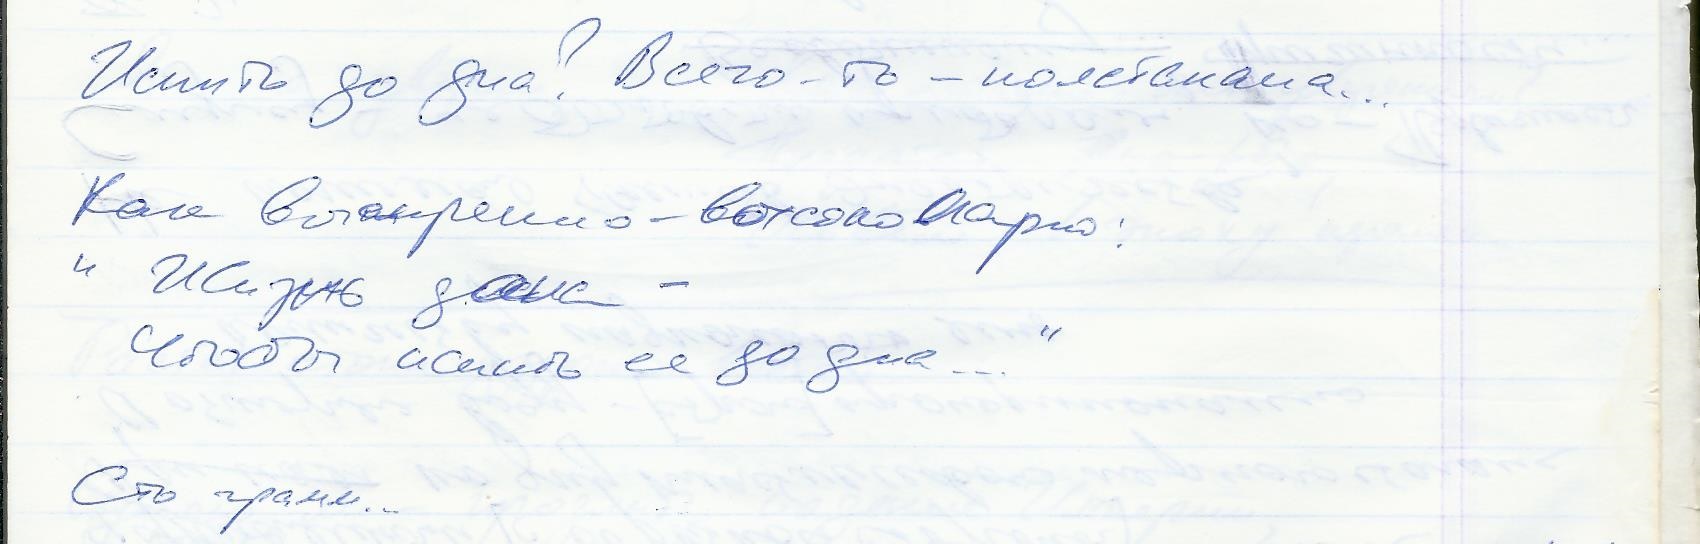 Испить до дна? Всего-то – полстакана...
Как выспренно-высокопарно:
"Жизнь дана –
Чтобы испить ее до дна..."
Сто грамм...